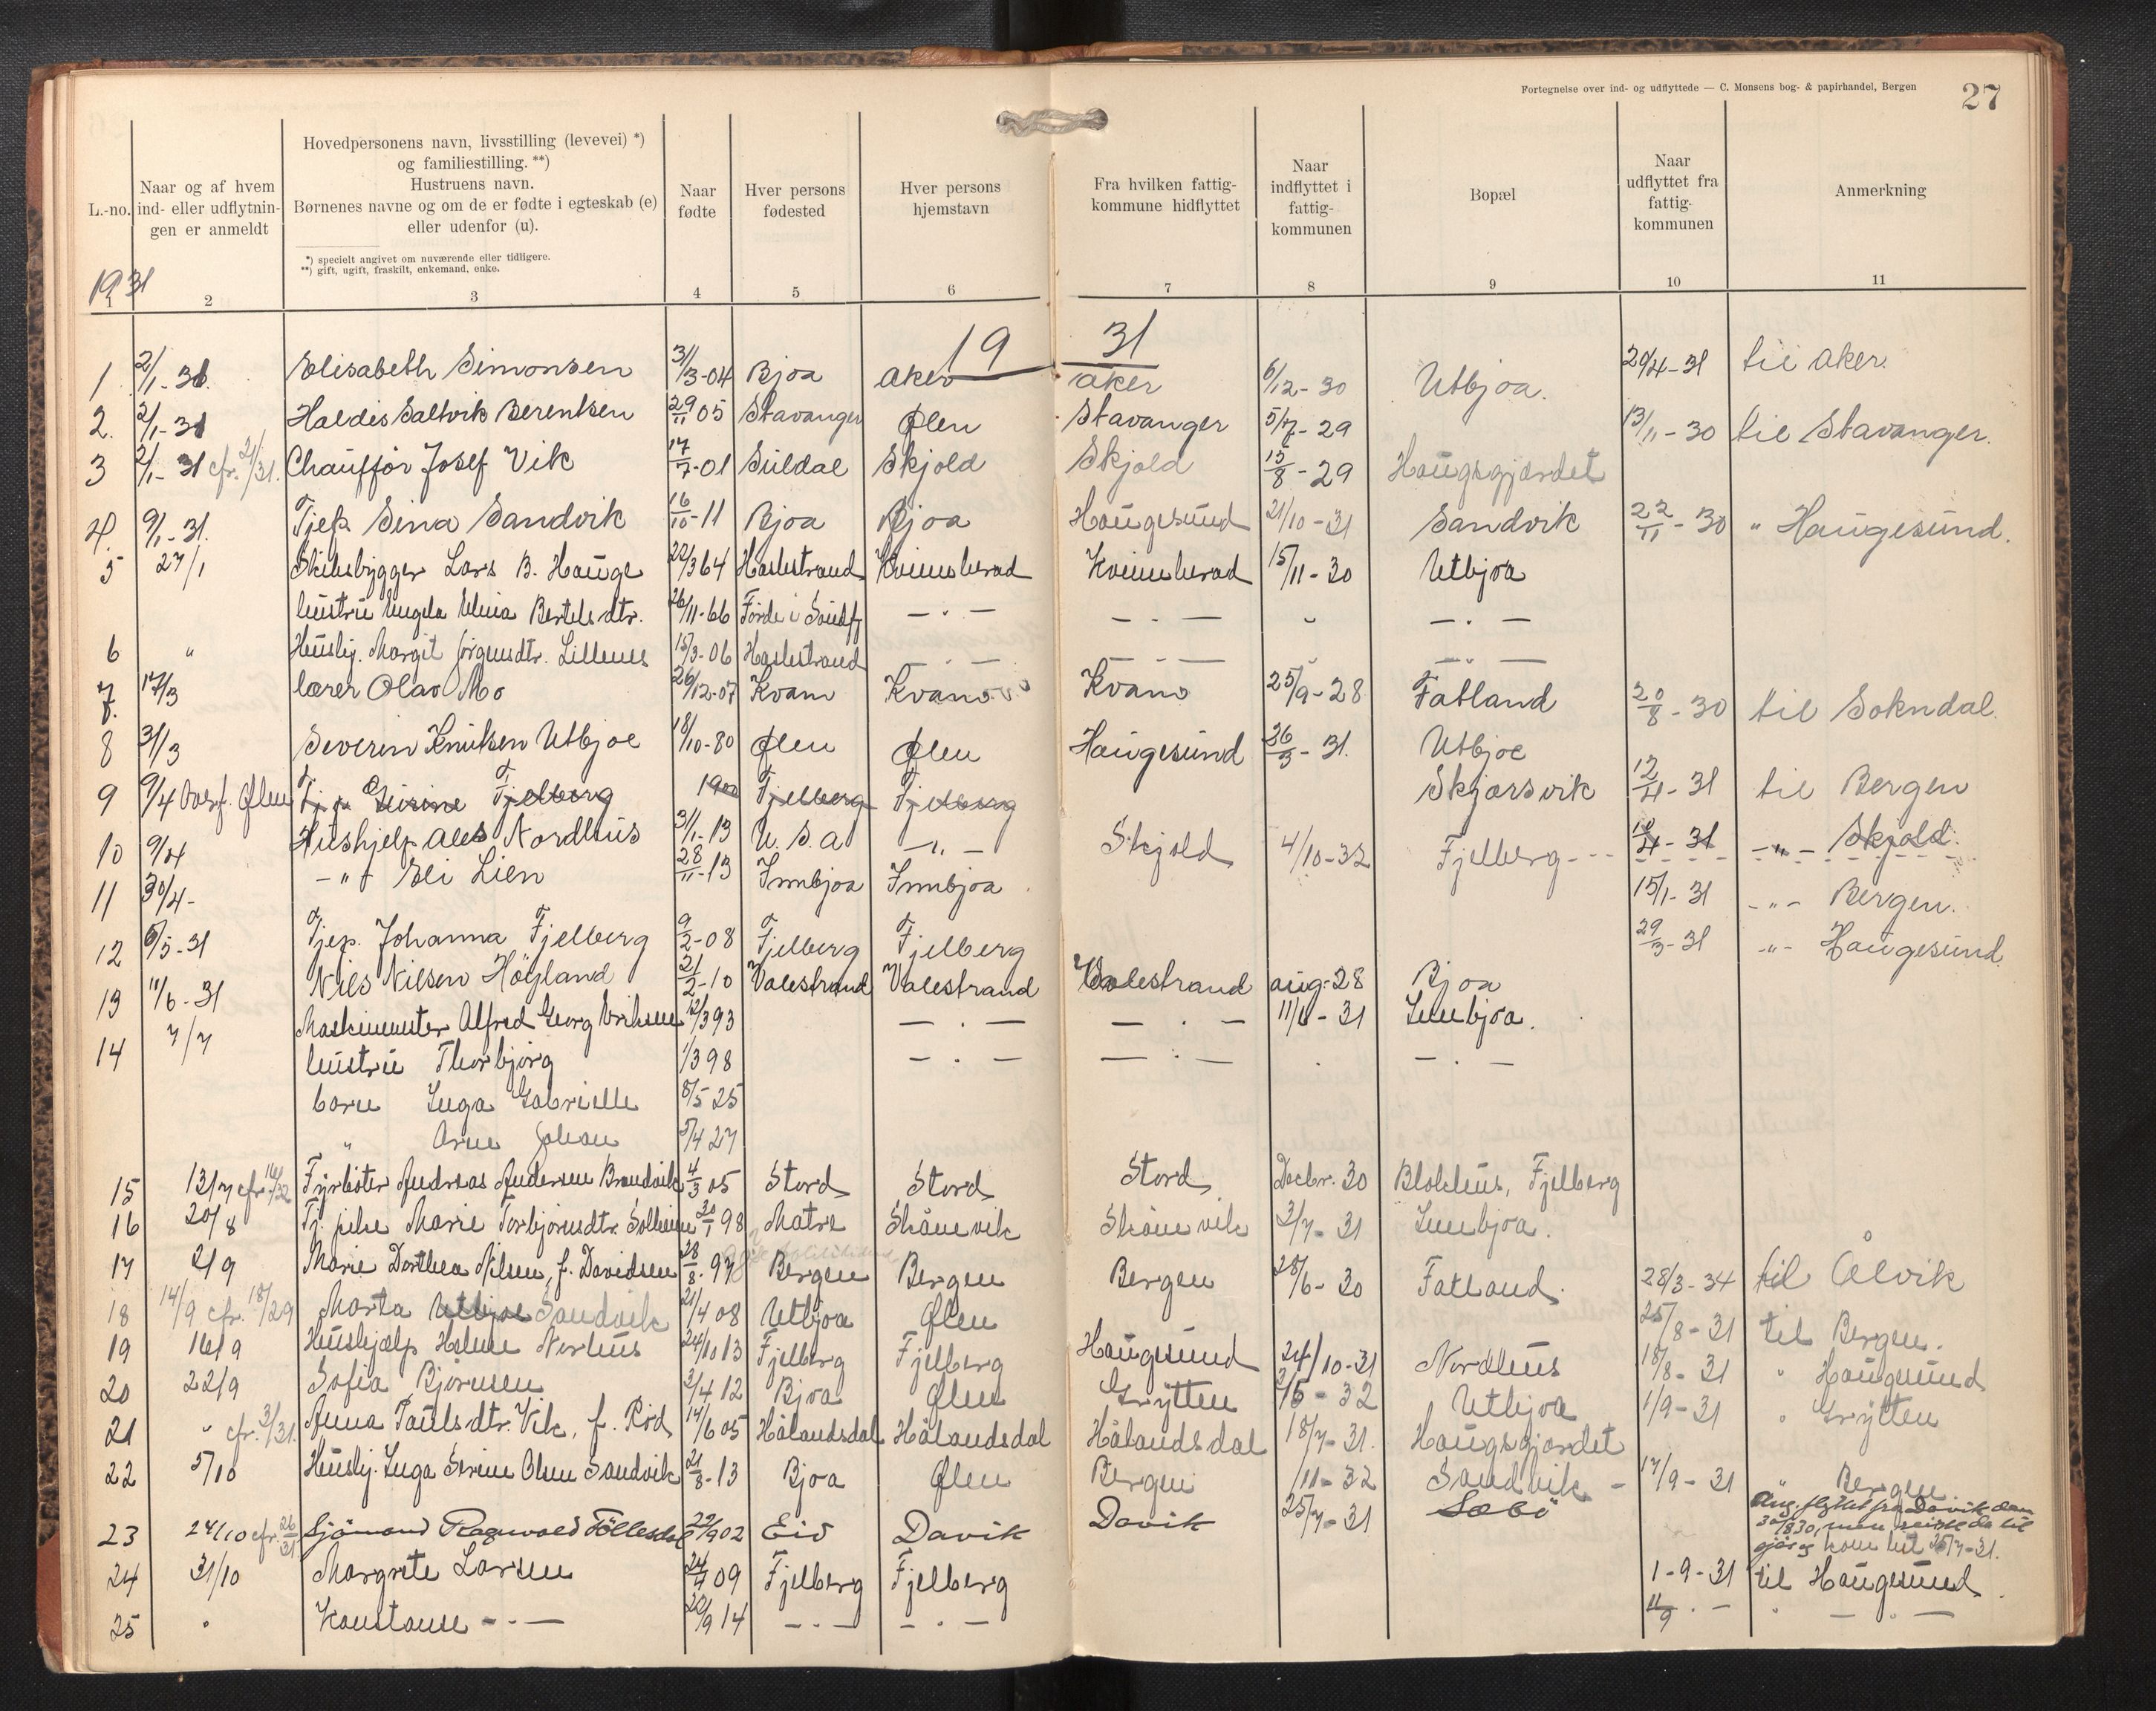 Fortegnelse over ind- og udflyttede — C. Monsens bog- & papirhandel, Bergen
27
L.-no.
Naar og af hvem ind- eller udflytningen er anmeldt
Hovedpersonens navn, livsstilling (levevei) *)
og familiestilling. **)
Hustruens navn.
Børnenes navne og om de er fødte i egteskab (e)
eller udenfor (u).
*) specielt angivet om nuværende eller tidligere.
**) gift, ugift, fraskilt, enkemand, enke.
Naar fødte
Hver persons fødested
Hver persons hjemstavn
Fra hvilken fattigkommune hidflyttet
Naar indflyttet i fattigkommunen
Bopæl
Naar udflyttet fra fattigkommunen
Anmerkning
1931
1 2 3 4 5 6 7 8 9 10 11
19 31
1. 2/1-31. Elisabeth Simonsen 31/3-04 Bjoa Aker Aker 6/12-30 Utbjoa. 29/4-31 til Aker.
2. 2/1-31 Haldis Saltvik Berentsen 29/11 05 Stavanger Ølen Stavanger 5/7-29 13/11-30 til Stavanger.
3 2/1-31 cfr. 21/31. Chauffør Josef Vik 17/7-01 Suldal Skjold Skjold 15/8-29 Haugsgjærdet
4. 9/1-31. Tjep. Sina Sandvik 16/10-11 Bjoa Bjoa Haugesund 21/10-31 Sandvik 22/11-30 " Haugesund.
5 27/1 Skibsbygger Lars B. Hauge 22/3 64 Haalestrand Kvinnherad Kvinnherad 15/11-30 Utbjoa
hustru Bertelsdtr. 26/11-66 Førde i Søndfj — . — — . — — . —
6 " Hushj. Margit Jørgensdtr. Lillenes 15/3-06 Haalestrand — . — — . — — " —
7. 17/3 lærer Olav Mo 26/12-07 Kvam Kvam Kvam 25/9-28 Fatland 20/8-30 til Sokndal.
8 31/3 Severin Knutsen Utbjoe 18/10-80 Ølen Ølen Haugesund 26/3-31. Utbjoe
9 9/4 Ølen Tjep. Fjelberg 1900 Fjelberg Fjelberg Skjærsvik 12/4-31 til Bergen
10 9/4 Hushjelp Ales Nordhus 3/1-13 U.S.A — " — Skjold 4/10-32 Fjelberg 10/4-31 — " — Skjold.
11 30/4- — " — Eli Lien 28/11-13 Innbjoa Innbjoa 15/1-31 - " - Bergen.
12 6/5-31 Tjep. Johanna Fjelberg 9/2-08 Fjelberg Fjelberg 29/3-31 - " - Haugesund.
13 11/6-31 Nils Nilsen Høgland 21/2-10 Valestrand Valestrand Valestrand aug. 28 Bjoa
14 7/7 Maskinmester Alfred Georg Eriksen 12/3 93 — . — — . — 11/6-31 Innbjoa.
hustru Thorbjørg 1/3 98 — . — — . — — . —
barn Inga Gabrielle 8/5 25
" Arne Johan 5/4 27
15 13/7 cfr. 16/32 Fyrbøter Andreas Andersen Brandvik 4/3 05 Stord Stord Stord Decbr. 30 Blokhus, Fjelberg
16 20/8 Tj. pike Marie Torbjørnsdtr. Solheim 30/1 98 Matre Skånevik Skånevik 3/7-31 Innbjoa.
17 2/9 Marie Dorthea Nilsen, f. Davidsen 28/8-97 Bergen Bergen Bergen 28/6-30 Fatland. 28/3-34 til Ålvik
18 14/9 cfr. 18/29 Marta Utbjoe Sandvik 21/4 08 Utbjoa Ølen 25/8-31 til Bergen.
19 16/9 Hushjælp Helene Nerhus 24/10 13 Fjelberg Fjelberg Haugesund 24/10-31 Nordhus 18/8-31 " Haugesund
20 22/9 Sofia Bjørnsen 3/4 12 Bjoa Ølen Grytten 15-32 Utbjoa 1/9-31 " Grytten
21 " cfr. 3/31. Anna Paulsdtr. Vik, f. Röd 14/6 05 Hålandsdal Hålandsdal Hålandsdal 18/7-31. Haugsgjærdet
22 5/10 Hushj. Inga Serine Olsen Sandvik 21/8-13 Bjoa Ølen Bergen 1/11-32 Sandvik - 17/9-31 " Bergen
23 24/10 cfr. 26/31 Sjömand Ragnvald Föllesdal 22/9 02 Eid Davik Davik 25/7-31 Søbö Ang. flyttet fra Davik den 30/8 30, men reiste da til sjøs og kom hit 25/7-31.
24 31/10 Margrete Larsen 24/7 09 Fjelberg Fjelberg 1-9-31 til Haugesund.
25 " Konstanse - " — 22/9 14 — . — — . — 11/9 . — " — . —